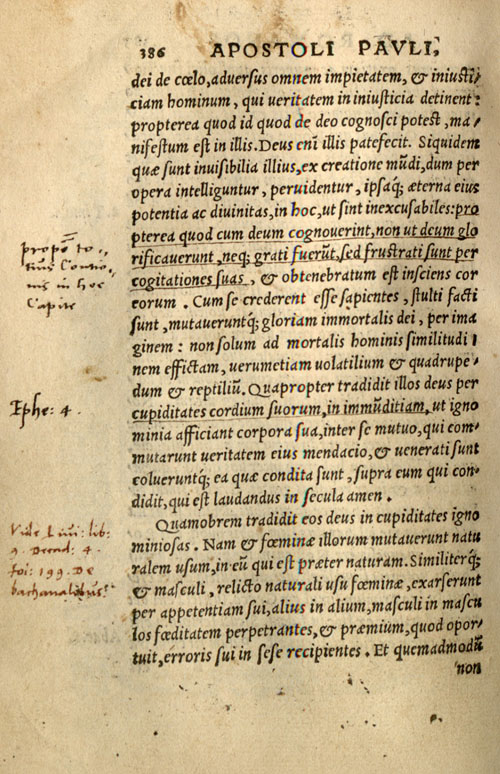 386 APOSTOLI PAVLI,
dei de cœlo, aduersus omnem impietatem, & iniusti
ciam hominum, qui ueritatem in iniusticia detinent:
propterea quod id quod de deo cognosci potest, ma/
nifestum est in illis. Deus eni͂ illis patefecit. Siquidem
quæ sunt inuisibilia illius, ex creatione mũdi, dum per
opera intelliguntur, peruidentur, ipsaq; æterna eius
potentia ac diuinitas, in hoc, ut sint inexcusabiles: pro
pterea quod cum deum cognouerint, non ut deum glo
rificauerunt, neq; grati fuerũt, sed frustrati sunt per
cogitationes suas, & obtenebratum est insciens cor
eorum. Cum se crederent esse sapientes, stulti facti
sunt, mutaueruntq́; gloriam immortalis dei, per ima
ginem: non solum ad mortalis hominis similitudi
nem effictam, uerumetiam uolatilium & quadrupe/
dum & reptiliũ. Quapropter tradidit illos deus per
cupiditates cordium suorum, in immũditiam, ut igno
minia afficiant corpora sua, inter se mutuo, qui com/
mutarunt ueritatem eius mendacio, & uenerati sunt
colueruntq́; ea quæ condita sunt, supra eum qui con/
didit, qui est laudandus in secula amen.
Quamobrem tradidit eos deus in cupiditates igno
miniosas. Nam & fœminæ illorum mutauerunt natu
ralem usum, in eũ qui est præter naturam. Similiterq́;
& masculi, relicto naturali usu fœminæ, exarserunt
per appetentiam sui, alius in alium, masculi in mascu
los fœditatem perpetrantes, & præmium, quod opor/
tuit, erroris sui in sese recipientes. Et quemadmodũ
non
to-
tius Contio-
nis in hoc
Capite
Ephe: 4.
Vide Liui: lib:
9. Decad: 4.
foi: 199. De
bachanalibus: